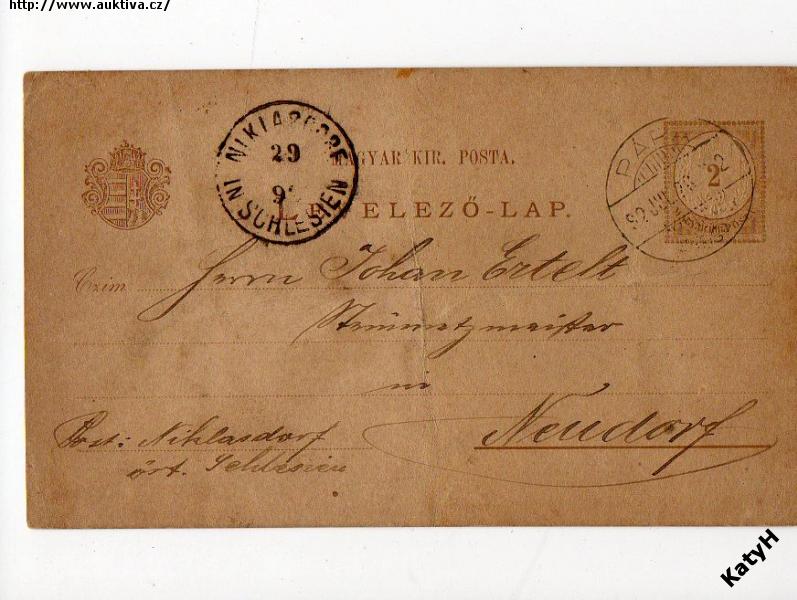 http://www.auktiva.cz/
NIKLASDORF
29
9
IN SCHLESIEN
MAGYAR KIR. POSTA.
LEVELEZŐ-LAP.
PÁP
92 JUN
2
Czim
Herrn Johan Ertelt
Steinmetzmeister
in
Neudorf
Post: Niklasdorf
öst. Schlesien
KatyH